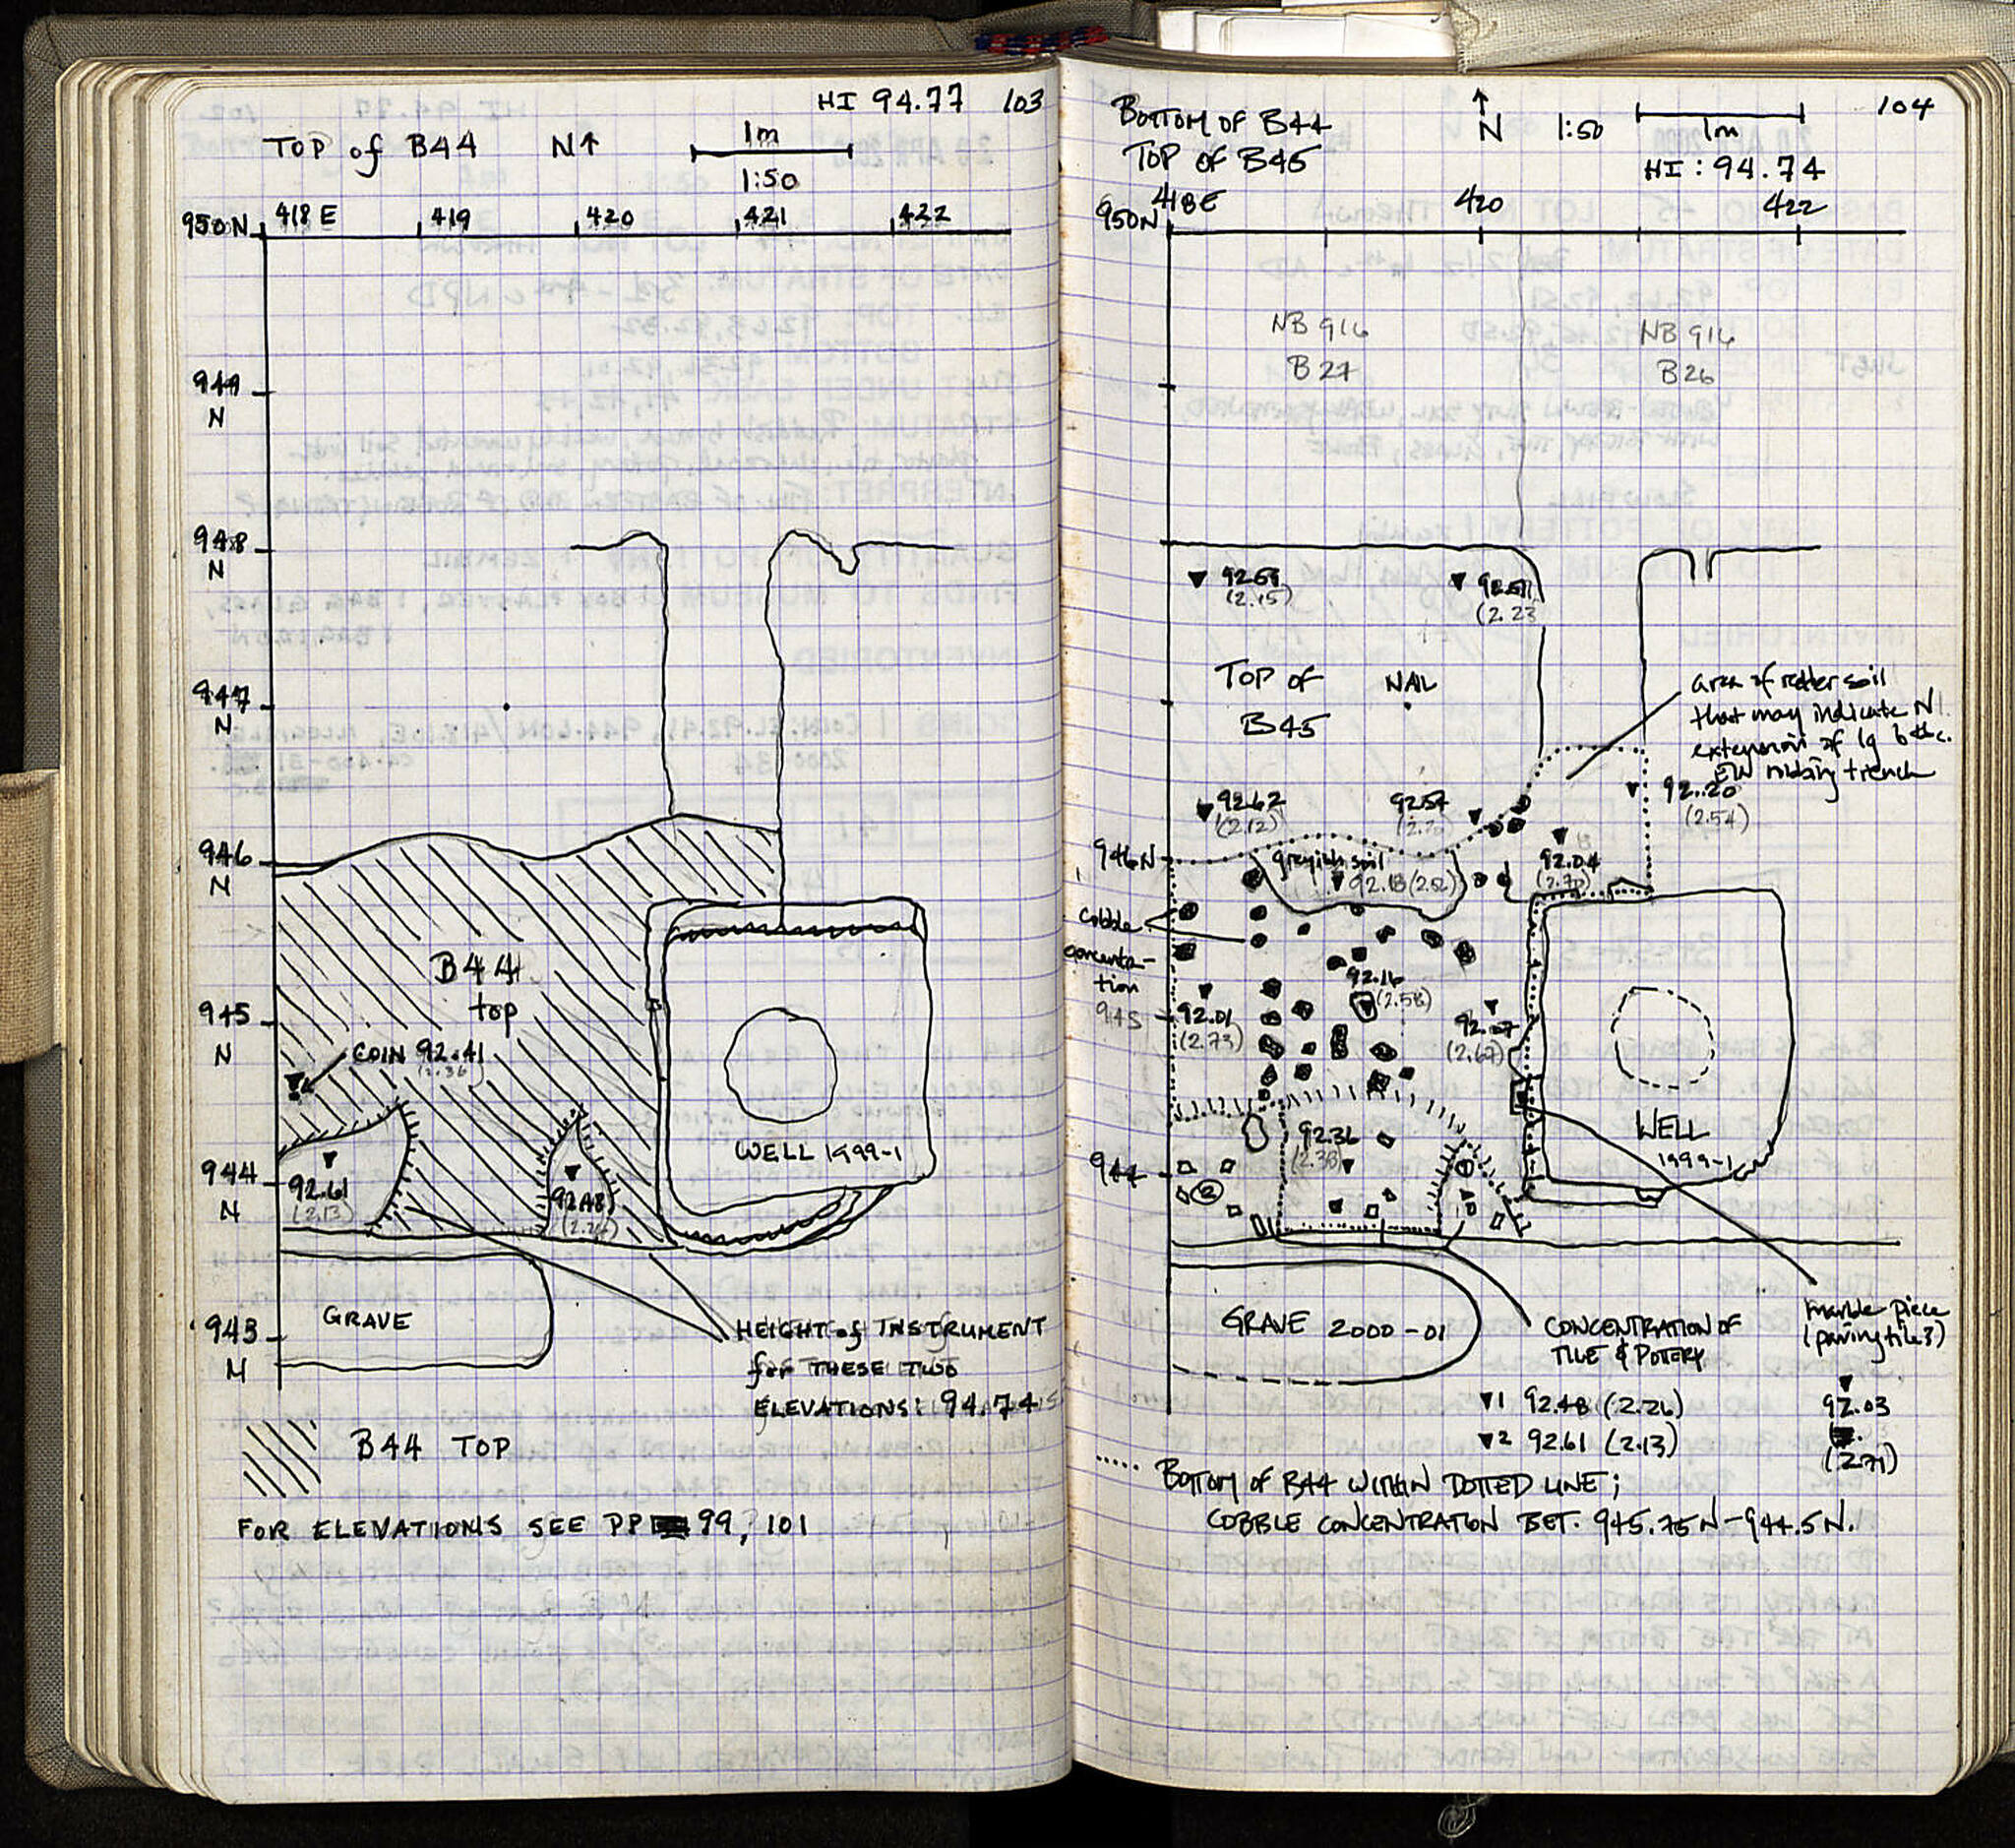 HI 94.77 103
TOP of B44 N↑ 1m
1:50
950N 418 E 419 420 421 422
949
N
948
N
947
N
946
N
B44
top
945
N
COIN 92.41
(2.36)
WELL 1999-1
944
N
92.61
(2.13)
92.48
(2.26)
943
N
GRAVE
HEIGHT of INSTRUMENT
for THESE TWO
ELEVATIONS: 94.74
B44 TOP
FOR ELEVATIONS SEE PP 99, 101
BOTTOM OF B44 N 1:50 1m 104
TOP OF B45
HI: 94.74
950N 418E 420 422
NB 916
B27
NB 916
B26
92.59
(2.15)
92.51
(2.23
TOP OF
B45
NAIL
area of redder soil
that may indicate N.
extension of lg
EW robbing trench
92.20
(2.54)
92.62
(2.12)
92.54
946N
greyish soil
92.18 (2.52)
92.04
(2.70)
cobble
concentra-
tion
92.16
(2.58)
945
92.01
(2.73)
92.07
(2.67)
WELL
1999-1
92.36
(2.38)
944
2
GRAVE 2000-01
CONCENTRATION OF
TILE & POTERY
marble piece
(paving tile?)
▼1 92.48 (2.26)
▼2 92.61 (2.13)
▼
92.03
(2.71)
..... BOTTOM OF B44 WITHIN DOTTED LINE;
COBBLE CONCENTRATION BET. 945.75N-944.5N.